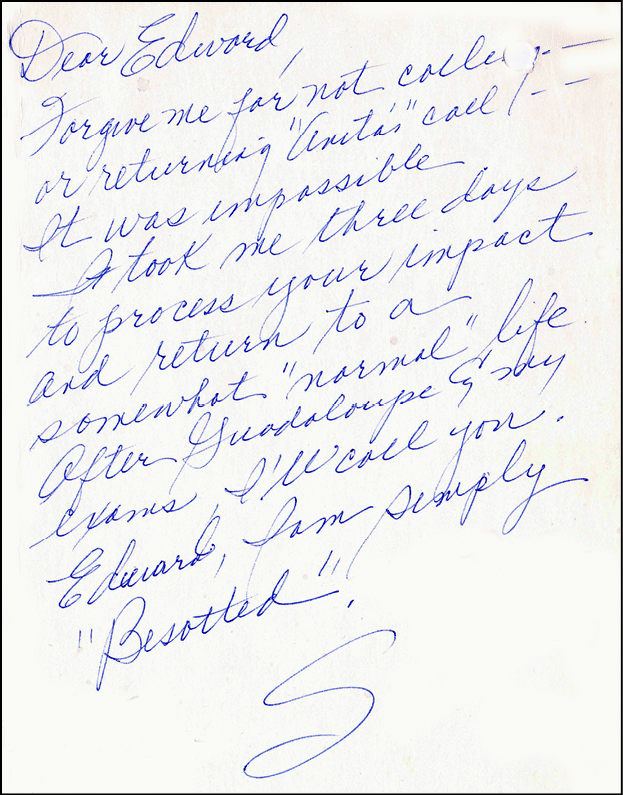 Dear Edward,
Forgive me for not calle --
or returning "Anita's" call ! --
It was impossible
It took me three days
to process your impact
and return to a
somewhat "normal" life
After Guadaloupe & my
exams, I'll call you.
Edward, I am simply
"Besotted".
S